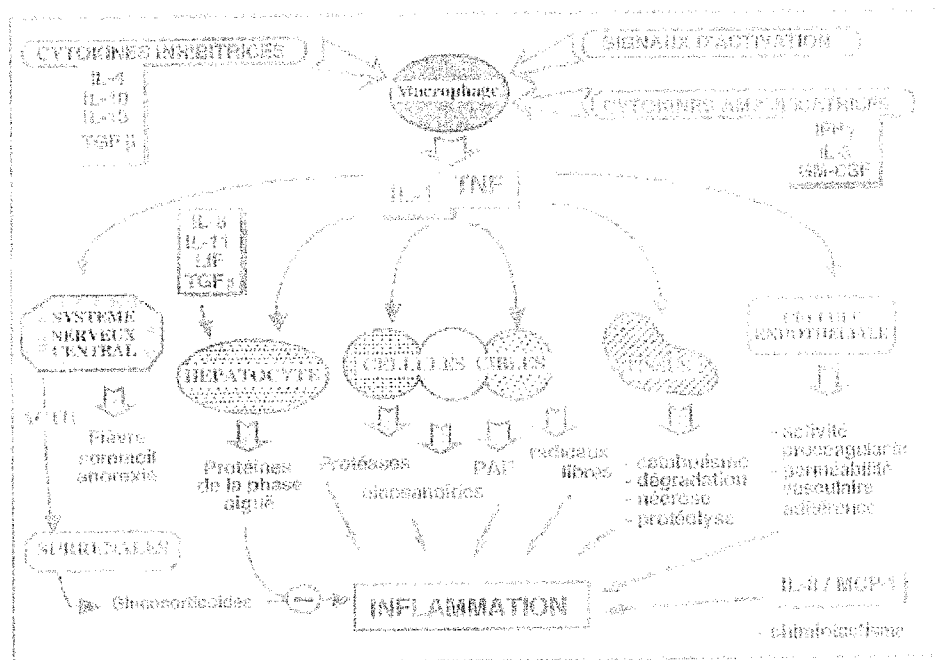 CYTOKINES INHIBITRICES
IL-4
IL-10
TGF β
SIGNAUX D'ACTIVATION
Macrophage
CYTOKINES AMPLIFICATRICES
IFN γ
IL-3
GM-CSF
IL-1
TNF
IL-11
LIF
TGF β
SYSTEME
NERVEUX
CENTRAL
HEPATOCYTE
CELLULES CIBLES
TISSUS
CELLULE
ENDOTHELIALE
ACTH
Fièvre
sommeil
anorexie
Protéines
de la phase
aiguë
Protéases
eicosanoïdes
PAF
radicaux
libres
- catabolisme
- dégradation
- nécrose
- protéolyse
- activité
procoagulante
- perméabilité
vasculaire
adhérence
SURRENALES
Glucocorticoides
INFLAMMATION
IL-8 / MCP-1
- chimiotactisme